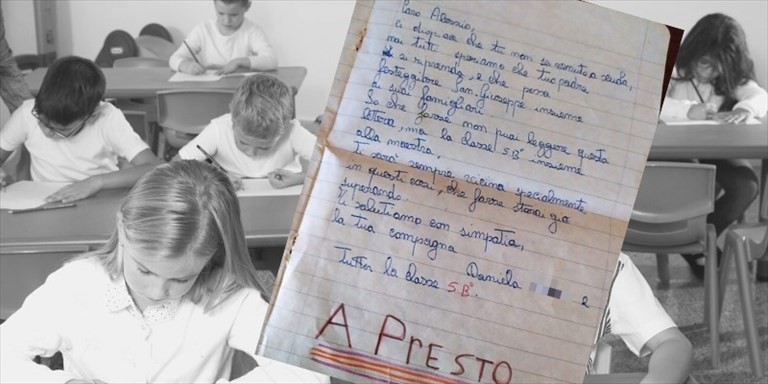 Caro Alessio,
ci dispiace che tu non sei venuto a scuola,
noi tutti speriamo che tuo padre
si riprenda, e che possa
festeggiare San Giuseppe insieme
ai suoi famigliari
So che forse non puoi leggere questa
lettera, ma la classe 5B insieme
alla maestra,
ti sarà sempre vicina specialmente
in questi casi, che forse starai già
superando.
Ti salutiamo con simpatia,
la tua compagna Daniela e
tutta la classe 5B.
A PrESTO